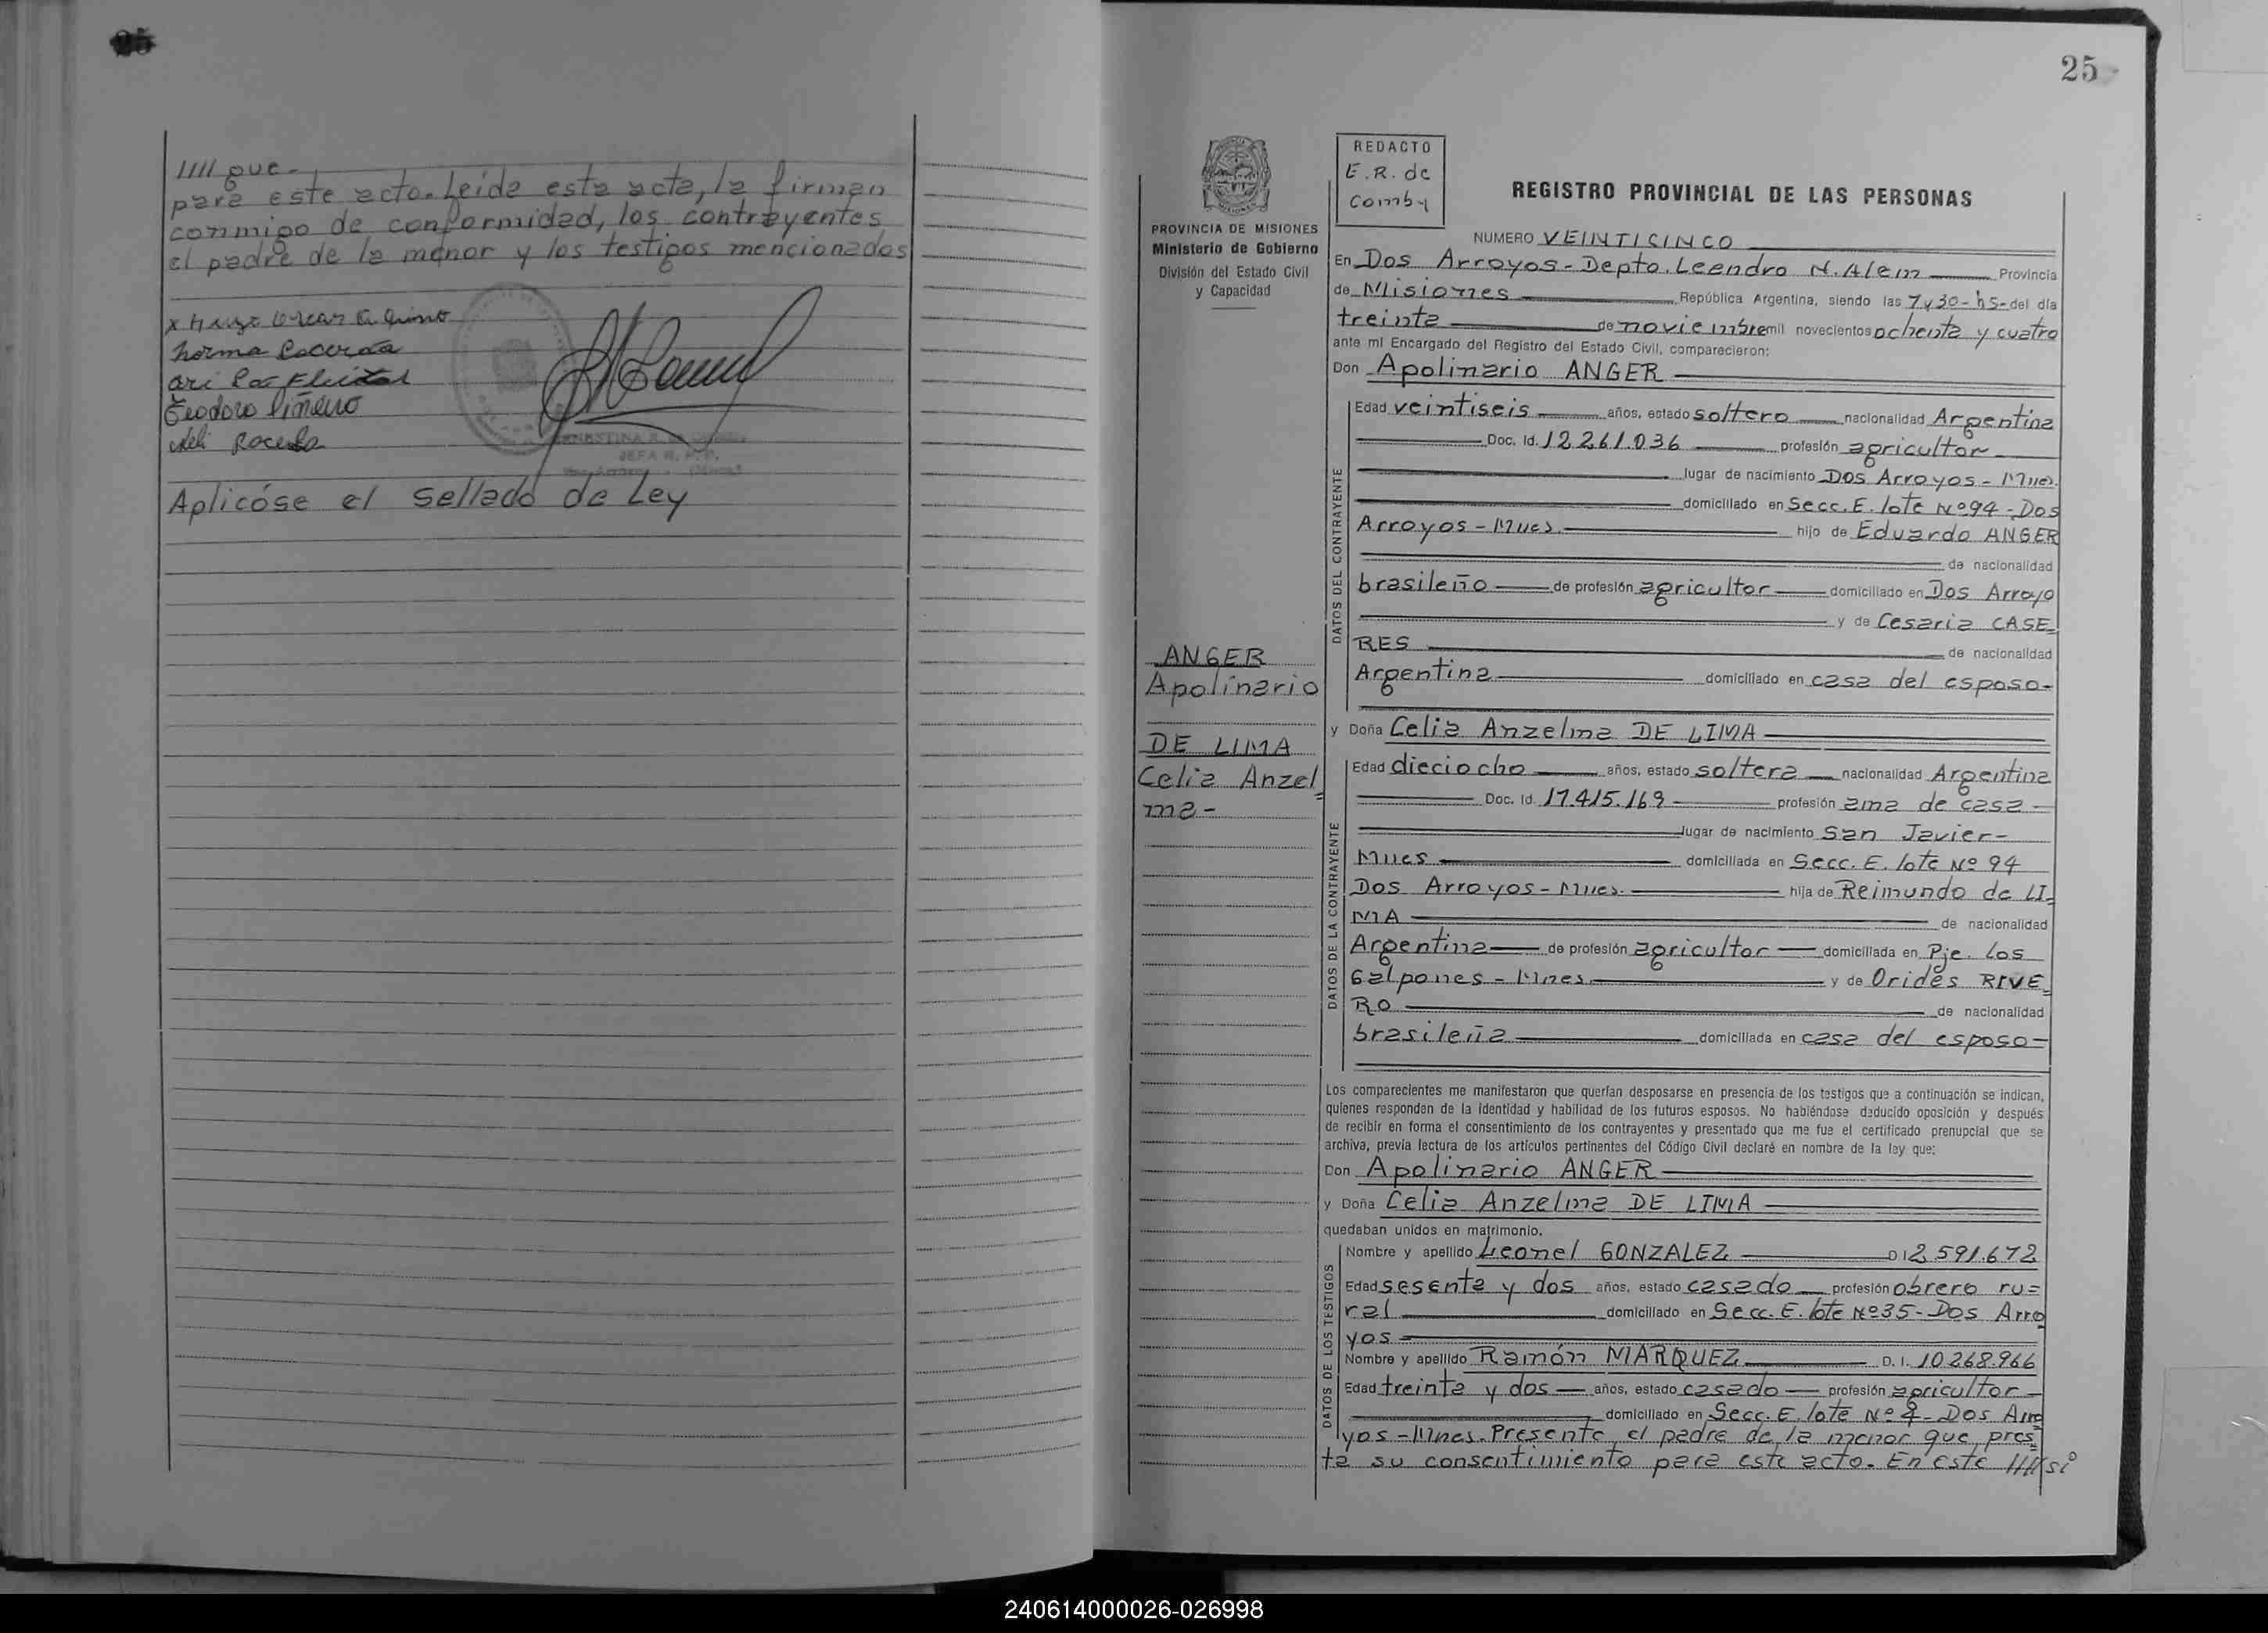 25
IIII que-
para este acto. Leida esta acta, la firman
conmigo de conformidad, los contrayentes
el padre de la menor y los testigos mencionados
x Hugo
Norma
Teodoro Piñeiro
JEFA R. P. P.
Aplicóse el sellado de Ley
25
PROVINCIA DE MISIONES
Ministerio de Gobierno
División del Estado Civil
y Capacidad
ANGER
Apolinario
DE LIMA
Celia Anzel=
ma-
REDACTO
E.R. de
Comby
REGISTRO PROVINCIAL DE LAS PERSONAS
NUMERO VEINTICINCO
En Dos Arroyos - Depto. Leandro N. Alem Provincia
de Misiones República Argentina, siendo las 7 y 30-hs- del día
treinta de noviembre mil novecientos ochenta y cuatro
ante mí Encargado del Registro del Estado Civil, comparecieron:
Don Apolinario ANGER
DATOS DEL CONTRAYENTE
Edad veintiseis años, estado soltero nacionalidad Argentina
Doc. Id. 12.261.036 profesión agricultor
lugar de nacimiento Dos Arroyos - Mnes.
domiciliado en Secc. E. lote Nº 94 - Dos
Arroyos - Mnes. hijo de Eduardo ANGER
de nacionalidad
brasileño de profesión agricultor domiciliado en Dos Arroyo
y de Cesaria CASE=
RES de nacionalidad
Argentina domiciliado en casa del esposo-
y Doña Celia Anzelma DE LIMA
DATOS DE LA CONTRAYENTE
Edad dieciocho años, estado soltera nacionalidad Argentina
Doc. Id. 17.415.169 profesión ama de casa
lugar de nacimiento San Javier-
Mnes domiciliada en Secc. E. lote Nº 94
Dos Arroyos - Mnes. hija de Reimundo de LI=
MA de nacionalidad
Argentina de profesión agricultor domiciliada en Pje. Los
Galpones - Mnes. y de Orides RIVE=
RO de nacionalidad
brasileña domiciliada en casa del esposo-
Los comparecientes me manifestaron que querían desposarse en presencia de los testigos que a continuación se indican,
quienes responden de la identidad y habilidad de los futuros esposos. No habiéndose deducido oposición y después
de recibir en forma el consentimiento de los contrayentes y presentado que me fue el certificado prenupcial que se
archiva, previa lectura de los artículos pertinentes del Código Civil declaré en nombre de la ley que:
Don Apolinario ANGER
y Doña Celia Anzelma DE LIMA
quedaban unidos en matrimonio.
DATOS DE LOS TESTIGOS
Nombre y apellido Leonel GONZALEZ D I 2.591.672
Edad sesenta y dos años, estado casado profesión obrero ru=
ral domiciliado en Secc. E. lote Nº 35 - Dos Arro
yos
Nombre y apellido Ramón MARQUEZ D. I. 10.268.966
Edad treinta y dos años, estado casado profesión agricultor
domiciliado en Secc. E. lote Nº 4 - Dos Arro
yos - Mnes. Presente el padre de la menor que pres=
ta su consentimiento para este acto. En este IIII si
240614000026-026998